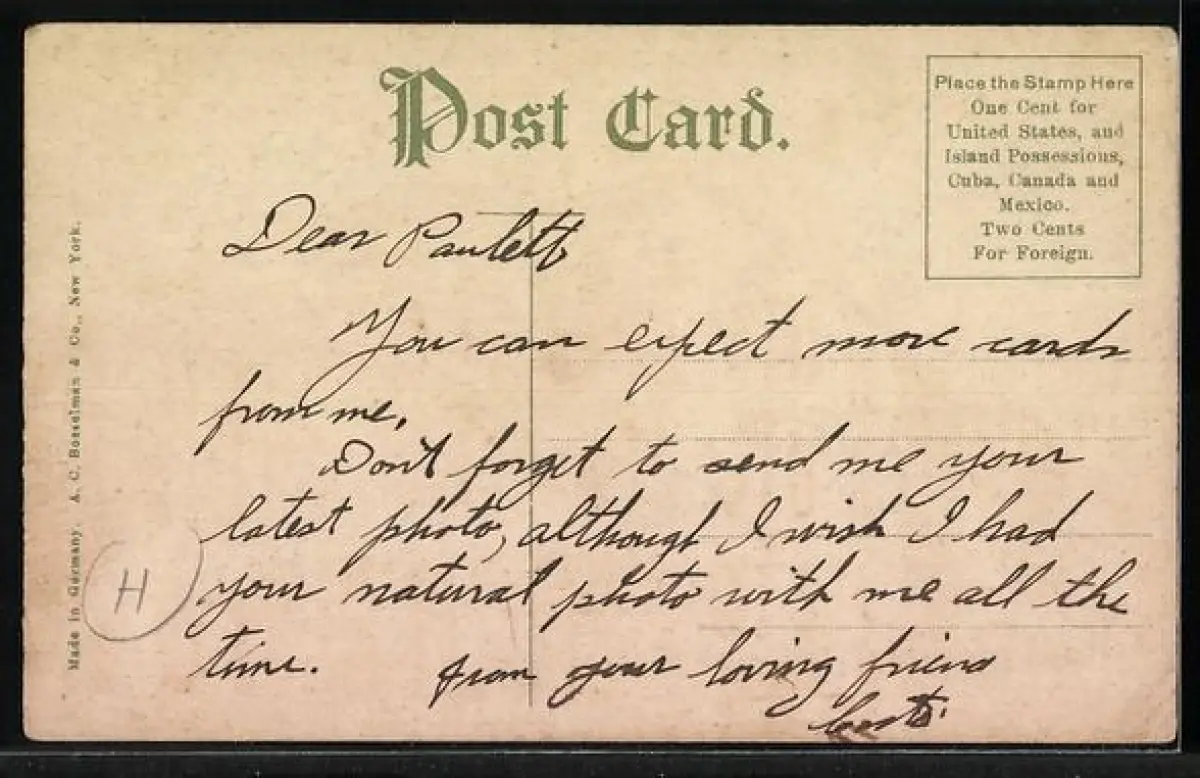 Post Card.
Place the Stamp Here
One Cent for
United States, and
Island Possessions,
Cuba, Canada and
Mexico.
Two Cents
For Foreign.
Dear Paulett
You can expect more cards
from me.
Don't forget to send me your
latest photo, although I wish I had
your natural photo with me all the
time. from your loving friend
Made in Germany. A. C. Bosselman & Co., New York.
H